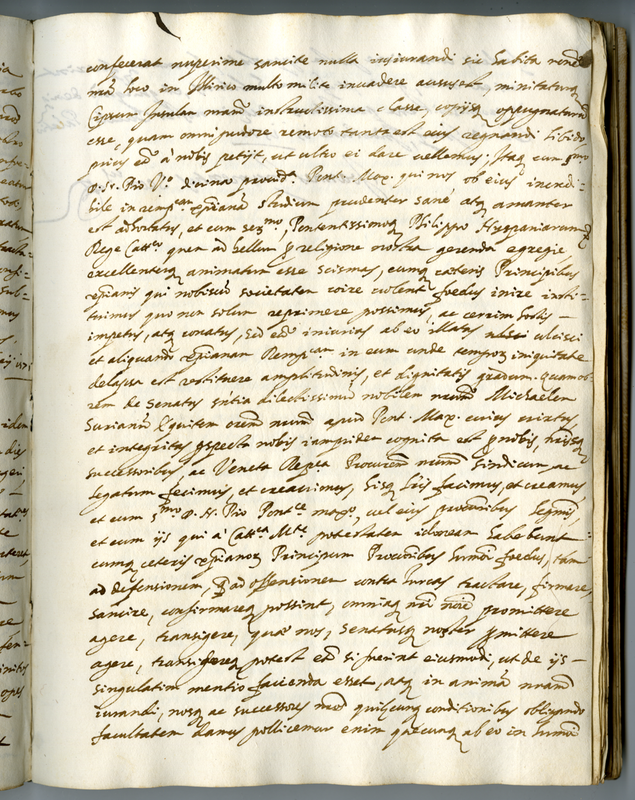 confecerat nuperime sancite nulla iusiurandi sic habita
loco in Illirico multo milite invadere ausus est, minitaturq
Ciprum Insulam nram instructissima classe, copijsq oppugnaturum
esse, quam omni pudore remoto tanta est eius regnandi libido,
prius et à nobis petijt, ut ultro ei dare vellemus; Itaq cum smo
D. N. Pio Vo divina provida Pont. Max. qui nos ob eius incredi-
bile in rempcam xpianam studium prudenter sane, atq amanter
est adhortatus, et cum Sermo, Potentissimoq Philippo Hyspaniarum
Rege Cattco, quem ad bellum p religione nostra gerenda egregie,
excellenterq animatum esse scimus, cumq cæteris Principibus
xpianis qui nobiscu societatem coire volent foedus inire insti-
tuimus quo non solum reprimere possimus, acerrimos
impetus, atq conatus, sed et iniurias ab eo illatas ulcisci
et aliquando xpianam Rempcam in eum unde temporum iniquitate
delapsa est restituere amplitudinis, et dignitatis gradum. quamob-
rem de Senatus sntia dilectissimum nobilem nrum Michaelem
Surianum Equitem orem nrum apud Pont. Max. cuius virtus
et integritas pspecta nobis iampridem cognita est p nobis,
successoribus, ac Veneta Repca Procurem nrum Sindicum, ac
legatum fecimus, et creavimus, sicq his facimus, et creamus,
et cum smo D. N. Pio Ponte maxo, vel eius procuribus legmis,
et cum ijs qui à Cattca Mte potestatem idoneam habebunt
cumq ceteris xpianor Principum Procuribus foedus, tam
ad defensionem, q ad offensionem contra Turcas tractare, firmare,
sancire, confirmareq possint, omniaq nri noie promittere
agere, transigere, quæ nos, Senatusq noster pmittere
agere, transigereq potest et si fuerint eiusmodi, ut de ijs
singulatim mentio facienda esset, atq in animam nram
iurandi, nosq ac successores nros quibcunq conditionibus obligando
facultatem damus pollicemur enim quæcunq ab eo in